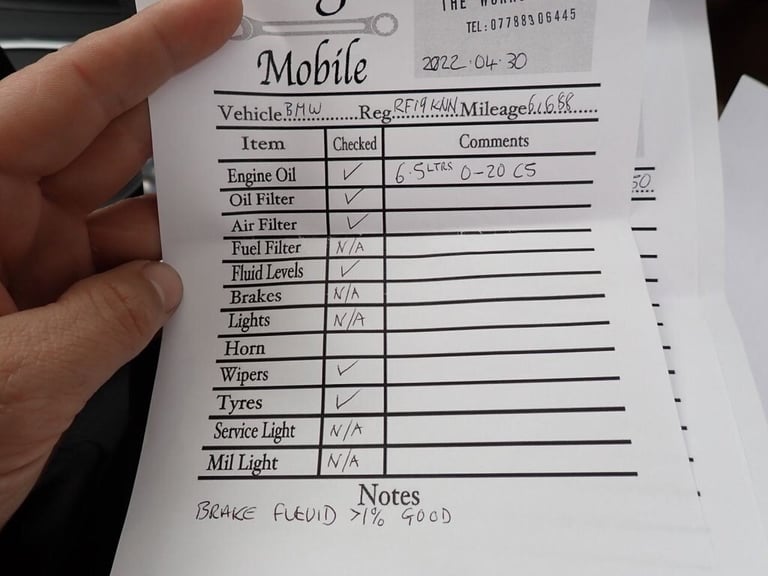 THE
TEL:07788306445
Mobile
2022.04.30
Vehicle BMW Reg RF19KNN Mileage 61688
Item Checked Comments
Engine Oil ✓ 6.5LTRS 0-20 C5
Oil Filter ✓
Air Filter ✓
Fuel Filter N/A
Fluid Levels ✓
Brakes N/A
Lights N/A
Horn
Wipers ✓
Tyres ✓
Service Light N/A
Mil Light N/A
Notes
BRAKE FLEUID >1% GOOD
50